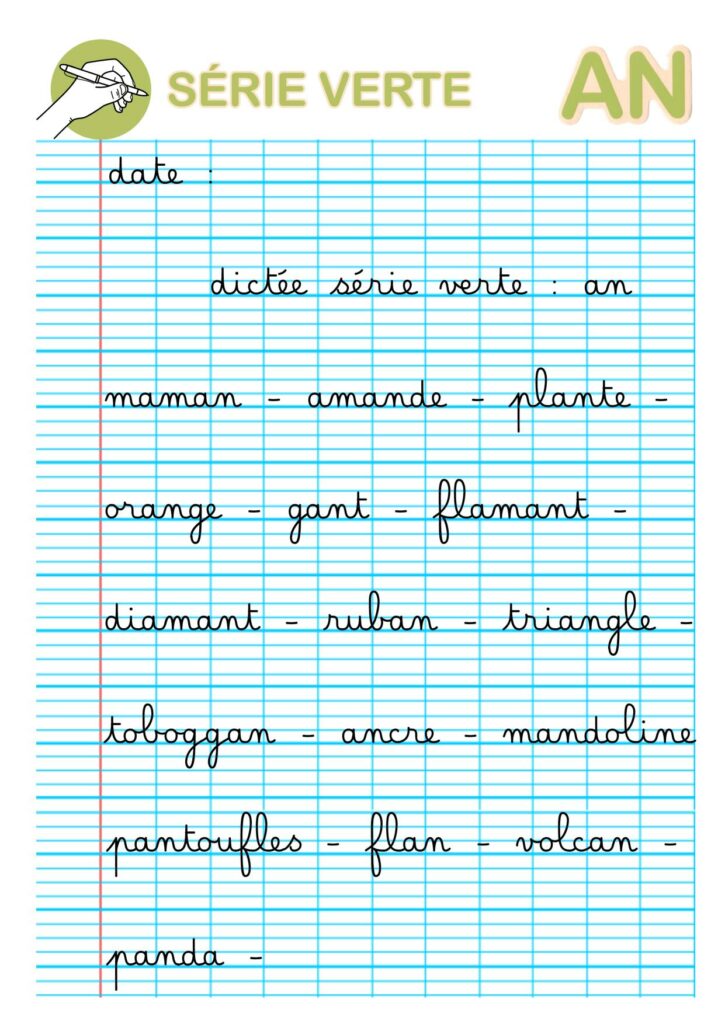 SÉRIE VERTE AN
date :
dictée série verte : an
maman - amande - plante -
orange - gant - flamant -
diamant - ruban - triangle -
toboggan - ancre - mandoline
pantoufles - flan - volcan -
panda -